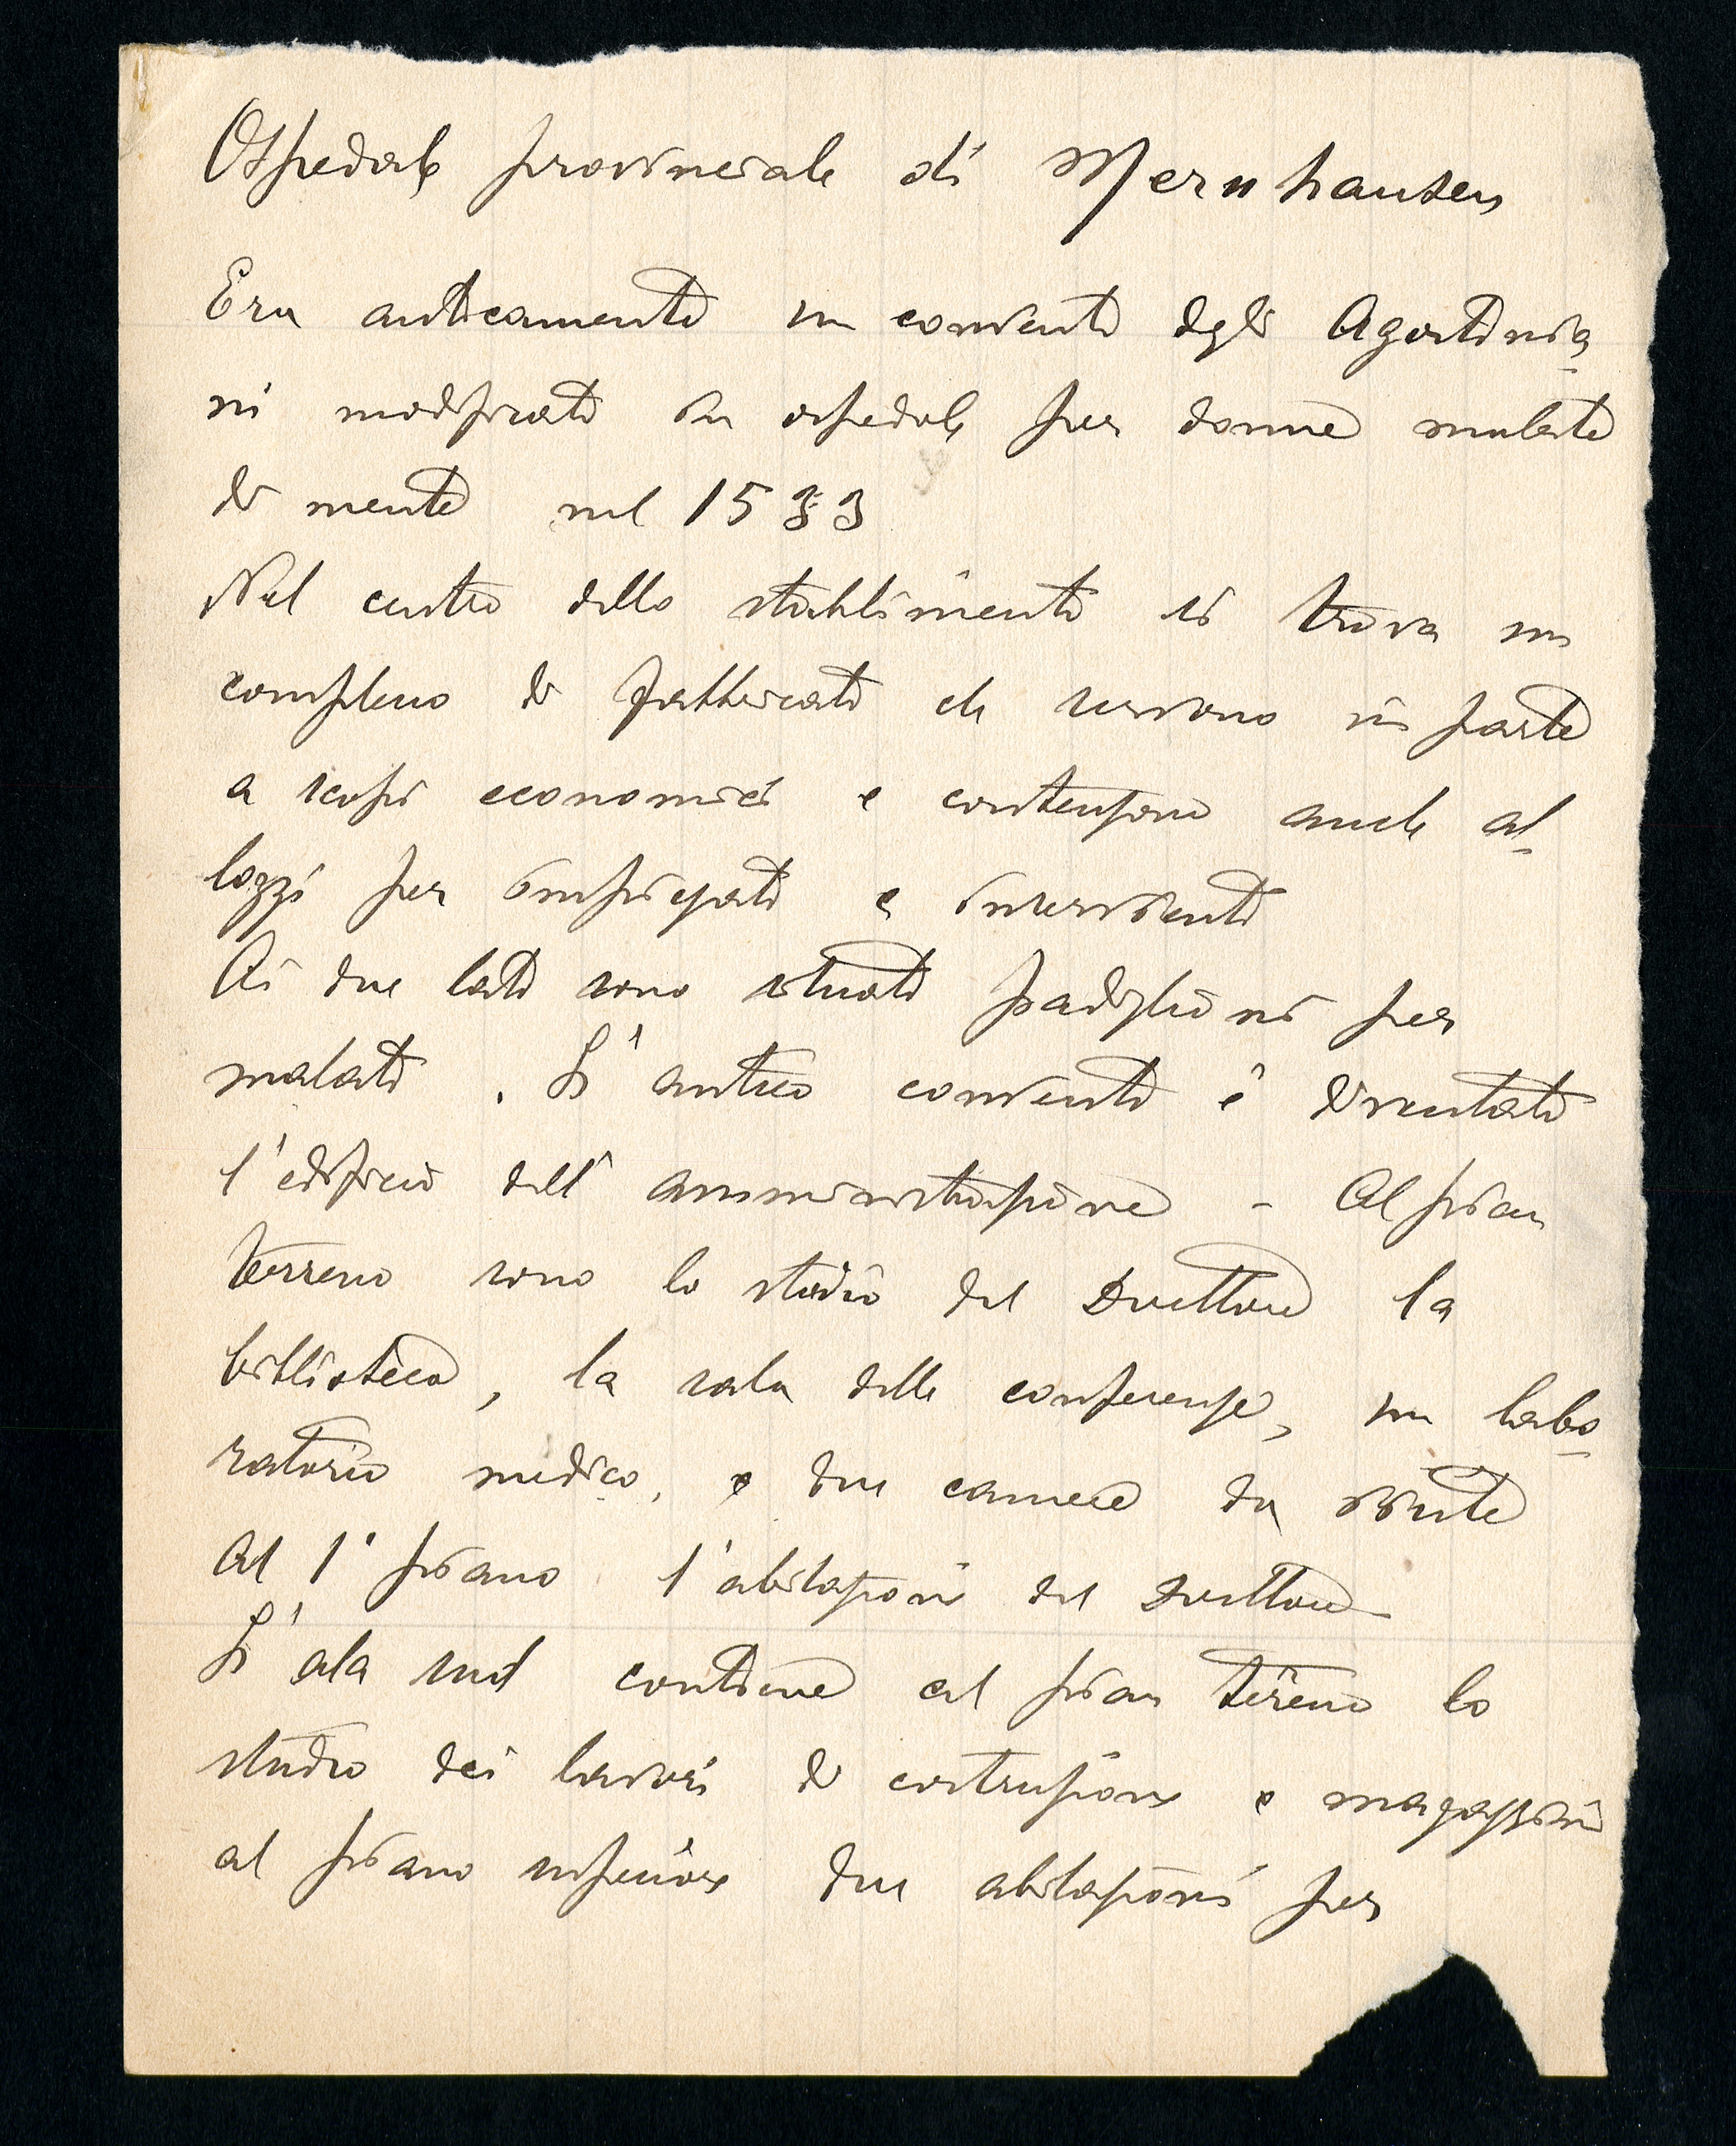 Ospedale provinciale di Mernhausen
Era anticamente un convento degli Agostinia-
ni modificato in ospedale per donne malate
di mente nel 1533
Nel centro dello stabilimento si trova un
complesso di fabbricati che servono in parte
a scopi economici e contengono anche al-
loggi per impiegati e inservienti
Ai due lati sono situati padiglioni per
malati. L'antico convento è diventato
l'edificio dell'amministrazione - Al pian
terreno sono lo studio del Direttore la
biblioteca, la sala delle conferenze, un labo-
ratorio medico, e due camere da visite
Al 1° piano l'abitazione del Direttore
L'ala sud contiene al pian terreno lo
studio dei lavori di costruzione e magazzini
al piano superiore due abitazioni per